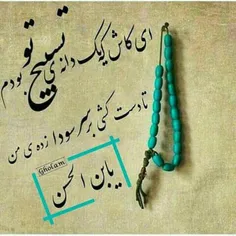 ای کاش یک دانه ی تسبیح تو بودم
تا دست کشی بر سر سودا زده ی من
یابن الحسن
Gholam